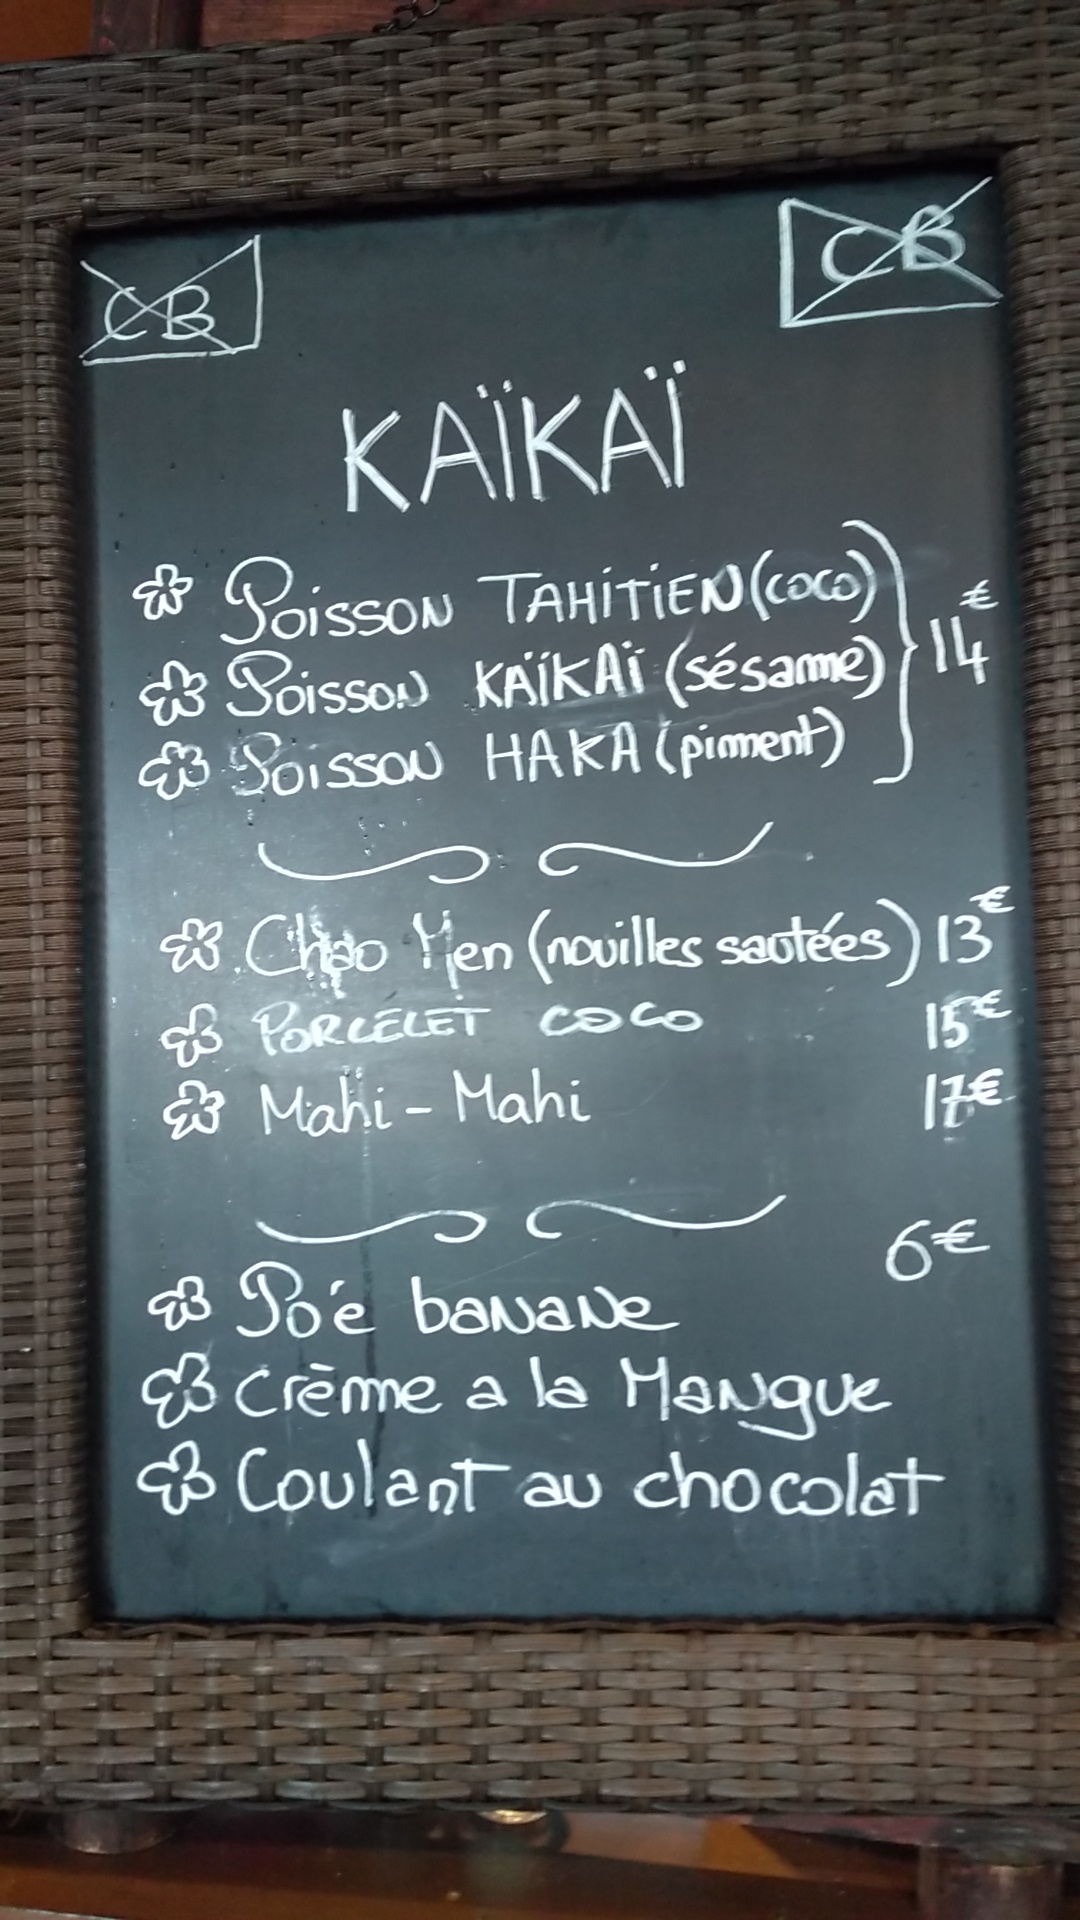 CB CB
KAÏKAÏ
Poisson TAHITIEN (coco)
Poisson KAÏKAÏ (sésame) 14€
Poisson HAKA (piment)
Chao Men (nouilles sautées) 13€
PORCELET COCO 15€
Mahi-Mahi 17€
6€
Po'e banane
Crème a la Mangue
Coulant au chocolat